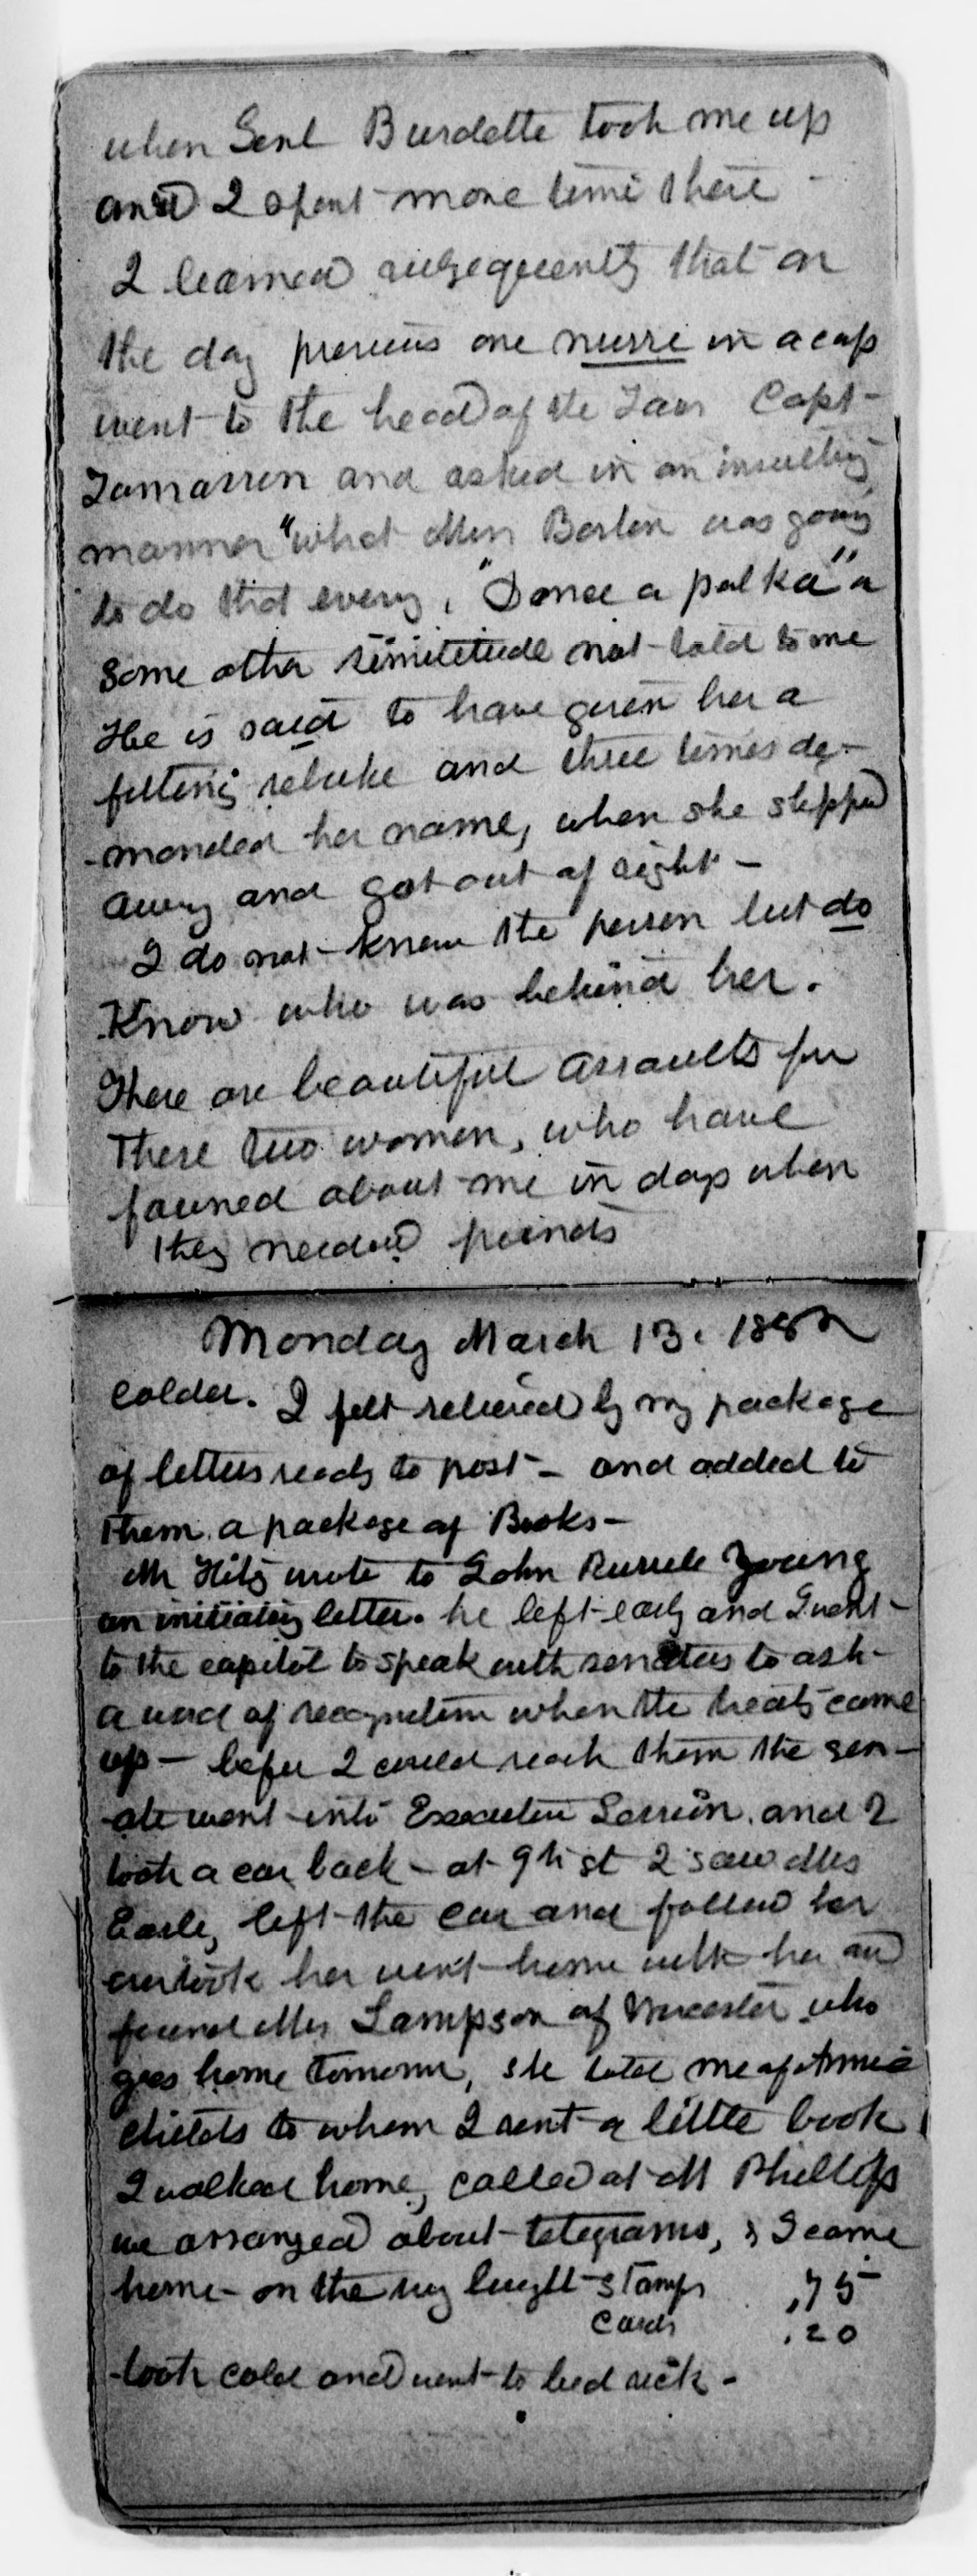 when Genl Burdette took me up
and I spent more time there -
I learned subsequently that on
the day previous one nurse in a cap
went to the head of the Fair Capt-
and asked in an insulting
manner "what Miss Barton was going
to do that eveng, "Dance a polka" or
some other similitude not told to me
He is said to have given her a
fitting rebuke and three times de-
-manded her name, when she slipped
away and got out of sight -
I do not know the person but do
Know who was behind her.
These are beautiful assaults for
These two women, who have
fawned about me in days when
they needed friends
Monday March 13. 1882
colder. I felt relieved by my package
of letters ready to post - and added to
them a package of Books -
Mr Hitz wrote to John Russell Young
an initiating letter. he left early and I went
to the capitol to speak with senators to ask
a word of recognition when the treaty came
up - before I could reach them the sen-
-ate went into Executive Session. and I
took a car back - at 9th st I saw Mrs
Earle, left the car and follow her
overtook her went home with her and
found Mrs Lampson of Worcester who
goes home tomorrow, she told me of Annie
Childs to whom I sent a little book
I walked home, called at M Phillips
we arranged about telegrams, & I came
home - on the way bought stamps .75
Cards .20
-took cold and went to bed sick -